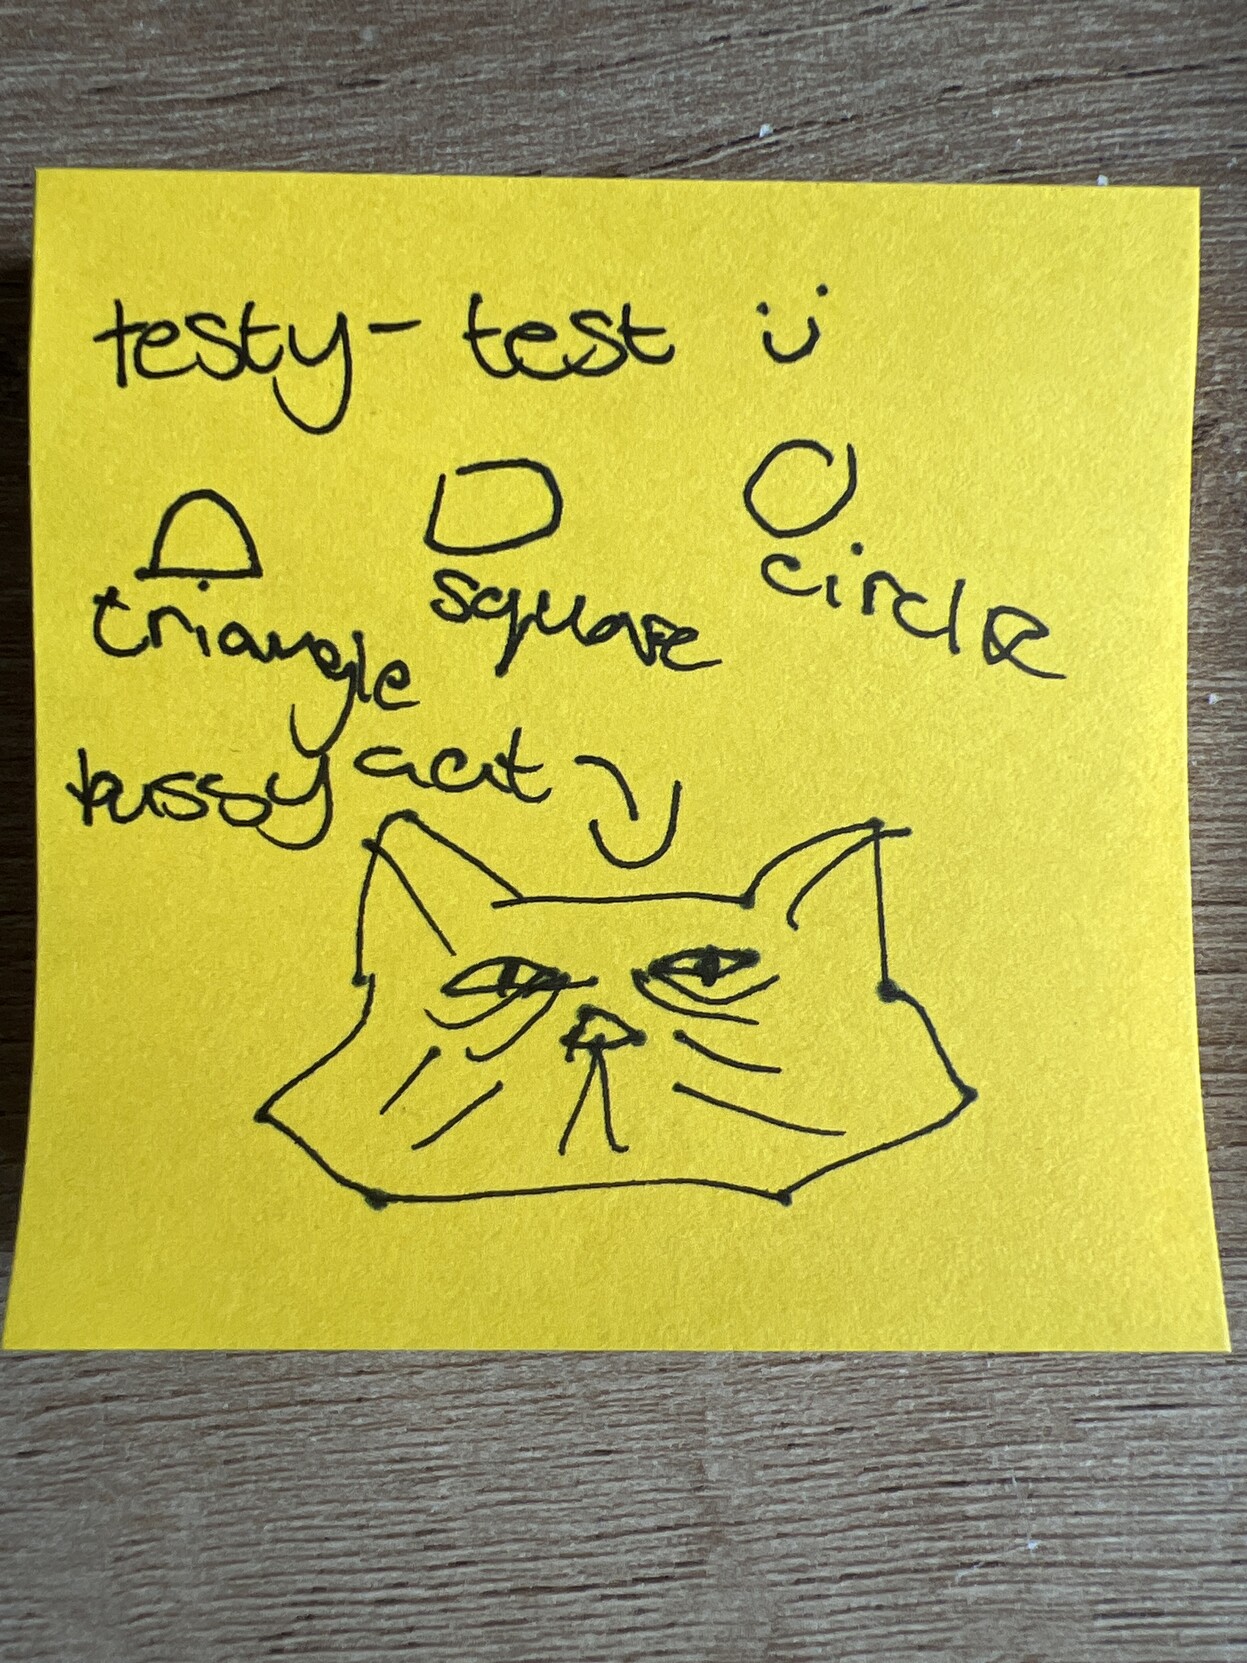 testy-test
triangle square circle
pussy acat